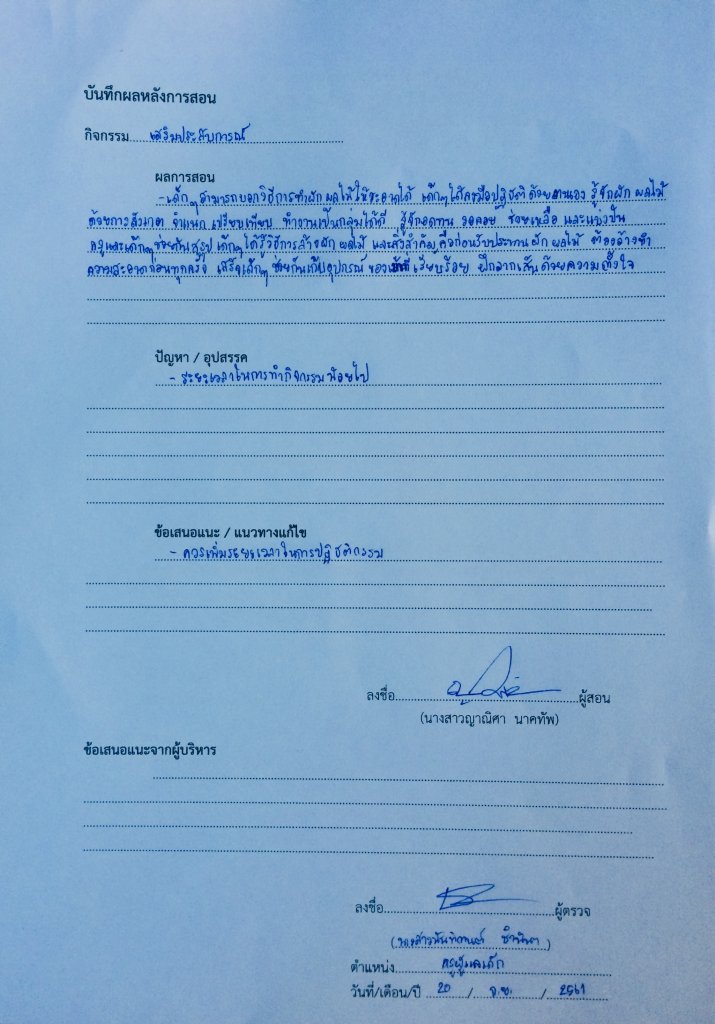 บันทึกผลหลังการสอน
กิจกรรม เสริมประสบการณ์
ผลการสอน
- เด็กๆสามารถบอกวิธีการทำผัก ผลไม้ให้สะอาดได้ เด็กๆได้ลงมือปฏิบัติด้วยตนเอง รู้จักผัก ผลไม้
ด้วยการสังเกต จำแนก เปรียบเทียบ ทำงานเป็นกลุ่มได้ดี รู้จักอดทน รอคอย ช่วยเหลือ และแบ่งปัน
ครูและเด็กๆช่วยกันสรุป เด็กๆได้รู้วิธีการล้างผัก ผลไม้ และสิ่งสำคัญ คือก่อนรับประทานผัก ผลไม้ ต้องล้างทำ
ความสะอาดก่อนทุกครั้ง เสร็จเด็กๆช่วยกันเก็บอุปกรณ์ของเข้าที่เรียบร้อย ฝึกลากเส้นด้วยความตั้งใจ
ปัญหา / อุปสรรค
- ระยะเวลาในการทำกิจกรรมน้อยไป
ข้อเสนอแนะ / แนวทางแก้ไข
- ควรเพิ่มระยะเวลาในการปฏิบัติกิจกรรม
ลงชื่อ ผู้สอน
(นางสาวญาณิศา นาคทัพ)
ข้อเสนอแนะจากผู้บริหาร
ลงชื่อ ผู้ตรวจ
ตำแหน่ง ครูผู้ดูแลเด็ก
วันที่/เดือน/ปี 20 / / 2561